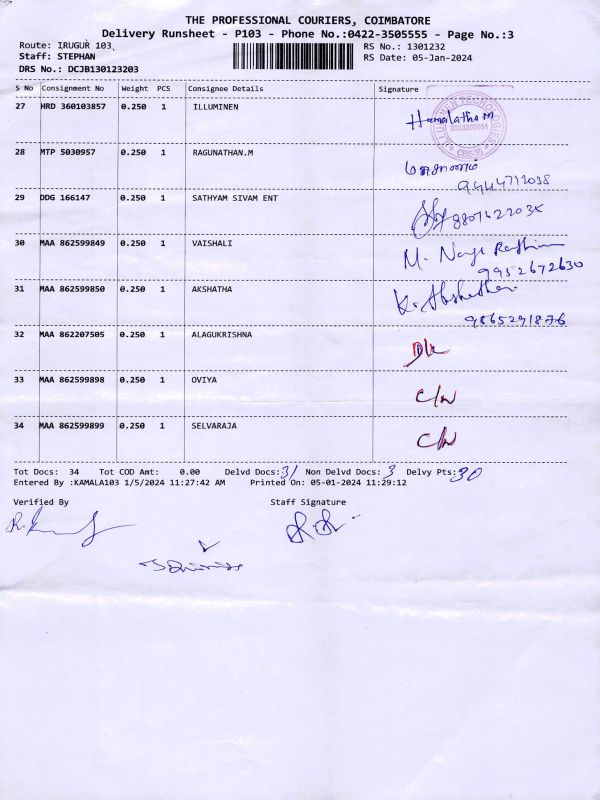 THE PROFESSIONAL COURIERS, COIMBATORE
Delivery Runsheet - P103 - Phone No.:0422-3505555 - Page No.:3
Route: IRUGUR 103,
RS No.: 1301232
Staff: STEPHAN
RS Date: 05-Jan-2024
DRS No.: DCJB130123203
S No Consignment No Weight PCS Consignee Details Signature
27 HRD 360103857 0.250 1 ILLUMINEN Hemalatha M
28 MTP 5030957 0.250 1 RAGUNATHAN.M
9944712038
29 DDG 166147 0.250 1 SATHYAM SIVAM ENT
30 MAA 862599849 0.250 1 VAISHALI M.
9952672630
31 MAA 862599850 0.250 1 AKSHATHA K. Akshatha
9865291876
32 MAA 862207505 0.250 1 ALAGUKRISHNA D/L
33 MAA 862599898 0.250 1 OVIYA C/N
34 MAA 862599899 0.250 1 SELVARAJA C/N
Tot Docs: 34 Tot COD Amt: 0.00 Delvd Docs: 31 Non Delvd Docs: 3 Delvy Pts: 30
Entered By :KAMALA103 1/5/2024 11:27:42 AM Printed On: 05-01-2024 11:29:12
Verified By Staff Signature